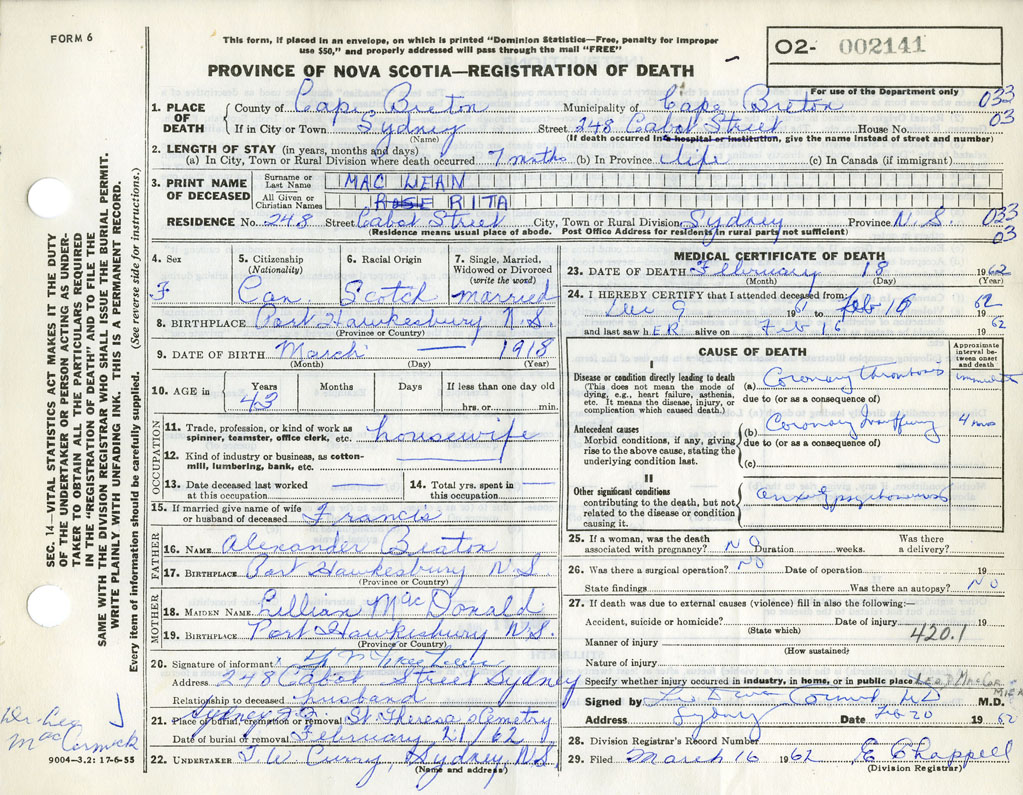 FORM 6
This form, if placed in an envelope, on which is printed "Dominion Statistics—Free, penalty for improper
use $50," and properly addressed will pass through the mail "FREE"
O2- 002141
PROVINCE OF NOVA SCOTIA—REGISTRATION OF DEATH
For use of the Department only
1. PLACE OF DEATH County of Cape Breton Municipality of Cape Breton 033
If in City or Town Sydney Street 248 Cabot Street House No. 03
(Name) (If death occurred in a hospital or institution, give the name instead of street and number)
2. LENGTH OF STAY (in years, months and days)
(a) In City, Town or Rural Division where death occurred 7 mnths (b) In Province life (c) In Canada (if immigrant)
3. PRINT NAME OF DECEASED Surname or Last Name MAC LEAN
All Given or Christian Names ROSE RITA
RESIDENCE No. 248 Street Cabot Street City, Town or Rural Division Sydney Province N S 033
(Residence means usual place of abode. Post Office Address for residents in rural parts not sufficient) 03
4. Sex F
5. Citizenship (Nationality) Can.
6. Racial Origin Scotch
7. Single, Married, Widowed or Divorced (write the word) married
8. BIRTHPLACE Port Hawkesbury N.S.
(Province or Country)
9. DATE OF BIRTH March — 1918
(Month) (Day) (Year)
10. AGE in Years Months Days If less than one day old
43 hrs. or min.
OCCUPATION
11. Trade, profession, or kind of work as spinner, teamster, office clerk, etc. housewife
12. Kind of industry or business, as cotton-mill, lumbering, bank, etc. —
13. Date deceased last worked at this occupation — 14. Total yrs. spent in this occupation —
15. If married give name of wife or husband of deceased Francis
FATHER
16. NAME Alexander Beaton
17. BIRTHPLACE Port Hawkesbury N S
(Province or Country)
MOTHER
18. MAIDEN NAME Lillian MacDonald
19. BIRTHPLACE Port Hawkesbury N.S.
(Province or Country)
20. Signature of informant
Address 248 Cabot Street Sydney
Relationship to deceased husband
21. Place of burial, cremation or removal St. Theresa's Cemetry
Date of burial or removal February 21/62
22. UNDERTAKER T W Curry, Sydney, N.S.
(Name and address)
MEDICAL CERTIFICATE OF DEATH
23. DATE OF DEATH February 18 1962
(Month) (Day) (Year)
24. I HEREBY CERTIFY that I attended deceased from:
Dec 9 1961 to Feb 16 1962
and last saw hER alive on Feb 16 1962
CAUSE OF DEATH
Approximate interval between onset and death
I
Disease or condition directly leading to death
(This does not mean the mode of dying, e.g., heart failure, asthenia, etc. It means the disease, injury, or complication which caused death.)
(a) Coronary thrombosis immediate
due to (or as a consequence of)
Antecedent causes
Morbid conditions, if any, giving rise to the above cause, stating the underlying condition last.
(b) Coronary
due to (or as a consequence of)
(c)
II
Other significant conditions
contributing to the death, but not related to the disease or condition causing it.
25. If a woman, was the death associated with pregnancy? NO Duration weeks. Was there a delivery?
26. Was there a surgical operation? NO Date of operation 19
State findings Was there an autopsy? NO
27. If death was due to external causes (violence) fill in also the following:—
Accident, suicide or homicide? Date of injury 19
(State which) 420.1
Manner of injury
(How sustained)
Nature of injury
Specify whether injury occurred in industry, in home, or in public place
Signed by M.D.
Address Sydney Date Feb 20 1962
28. Division Registrar's Record Number
29. Filed March 16 1962 E Chappell
(Division Registrar)
SEC. 14—VITAL STATISTICS ACT MAKES IT THE DUTY
OF THE UNDERTAKER OR PERSON ACTING AS UNDER-
TAKER TO OBTAIN ALL THE PARTICULARS REQUIRED
IN THE "REGISTRATION OF DEATH" AND TO FILE THE
SAME WITH THE DIVISION REGISTRAR WHO SHALL ISSUE THE BURIAL PERMIT.
WRITE PLAINLY WITH UNFADING INK. THIS IS A PERMANENT RECORD.
Every item of information should be carefully supplied. (See reverse side for instructions.)
Dr. Leo
MacCormick
9004—3.2: 17-6-55